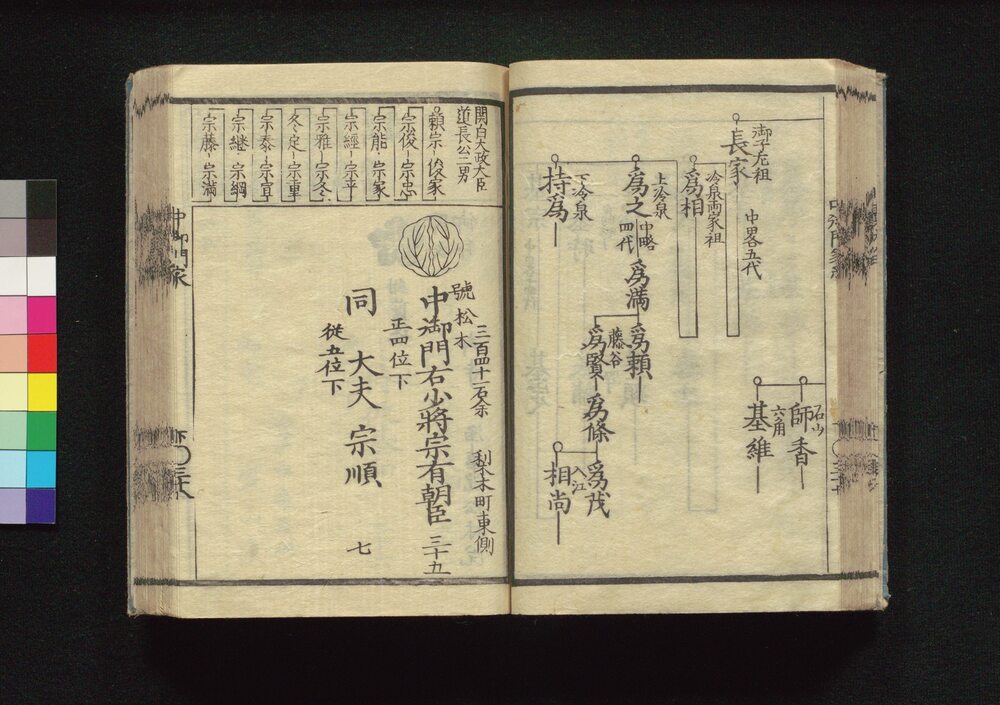 御子左祖
長家
中畧五代
石山
師香
六角
基維
冷泉両家祖
爲相
上冷泉
爲之
中略
四代
爲満
爲頼
藤谷
爲賢
爲條
爲茂
入江
相尚
下冷泉
持爲
関白太政大臣
道長公二男
頼宗 俊家
宗俊 宗忠
宗能 宗家
宗經 宗平
宗雅 宗冬
冬定 宗重
宗泰 宗宣
宗継 宗綱
宗藤 宗満
三百四十一石余 梨木町東側
號松木
中御門右少將宗有朝臣 三十九
正四位下
同 大夫 宗順 七
従五位下
中御門家